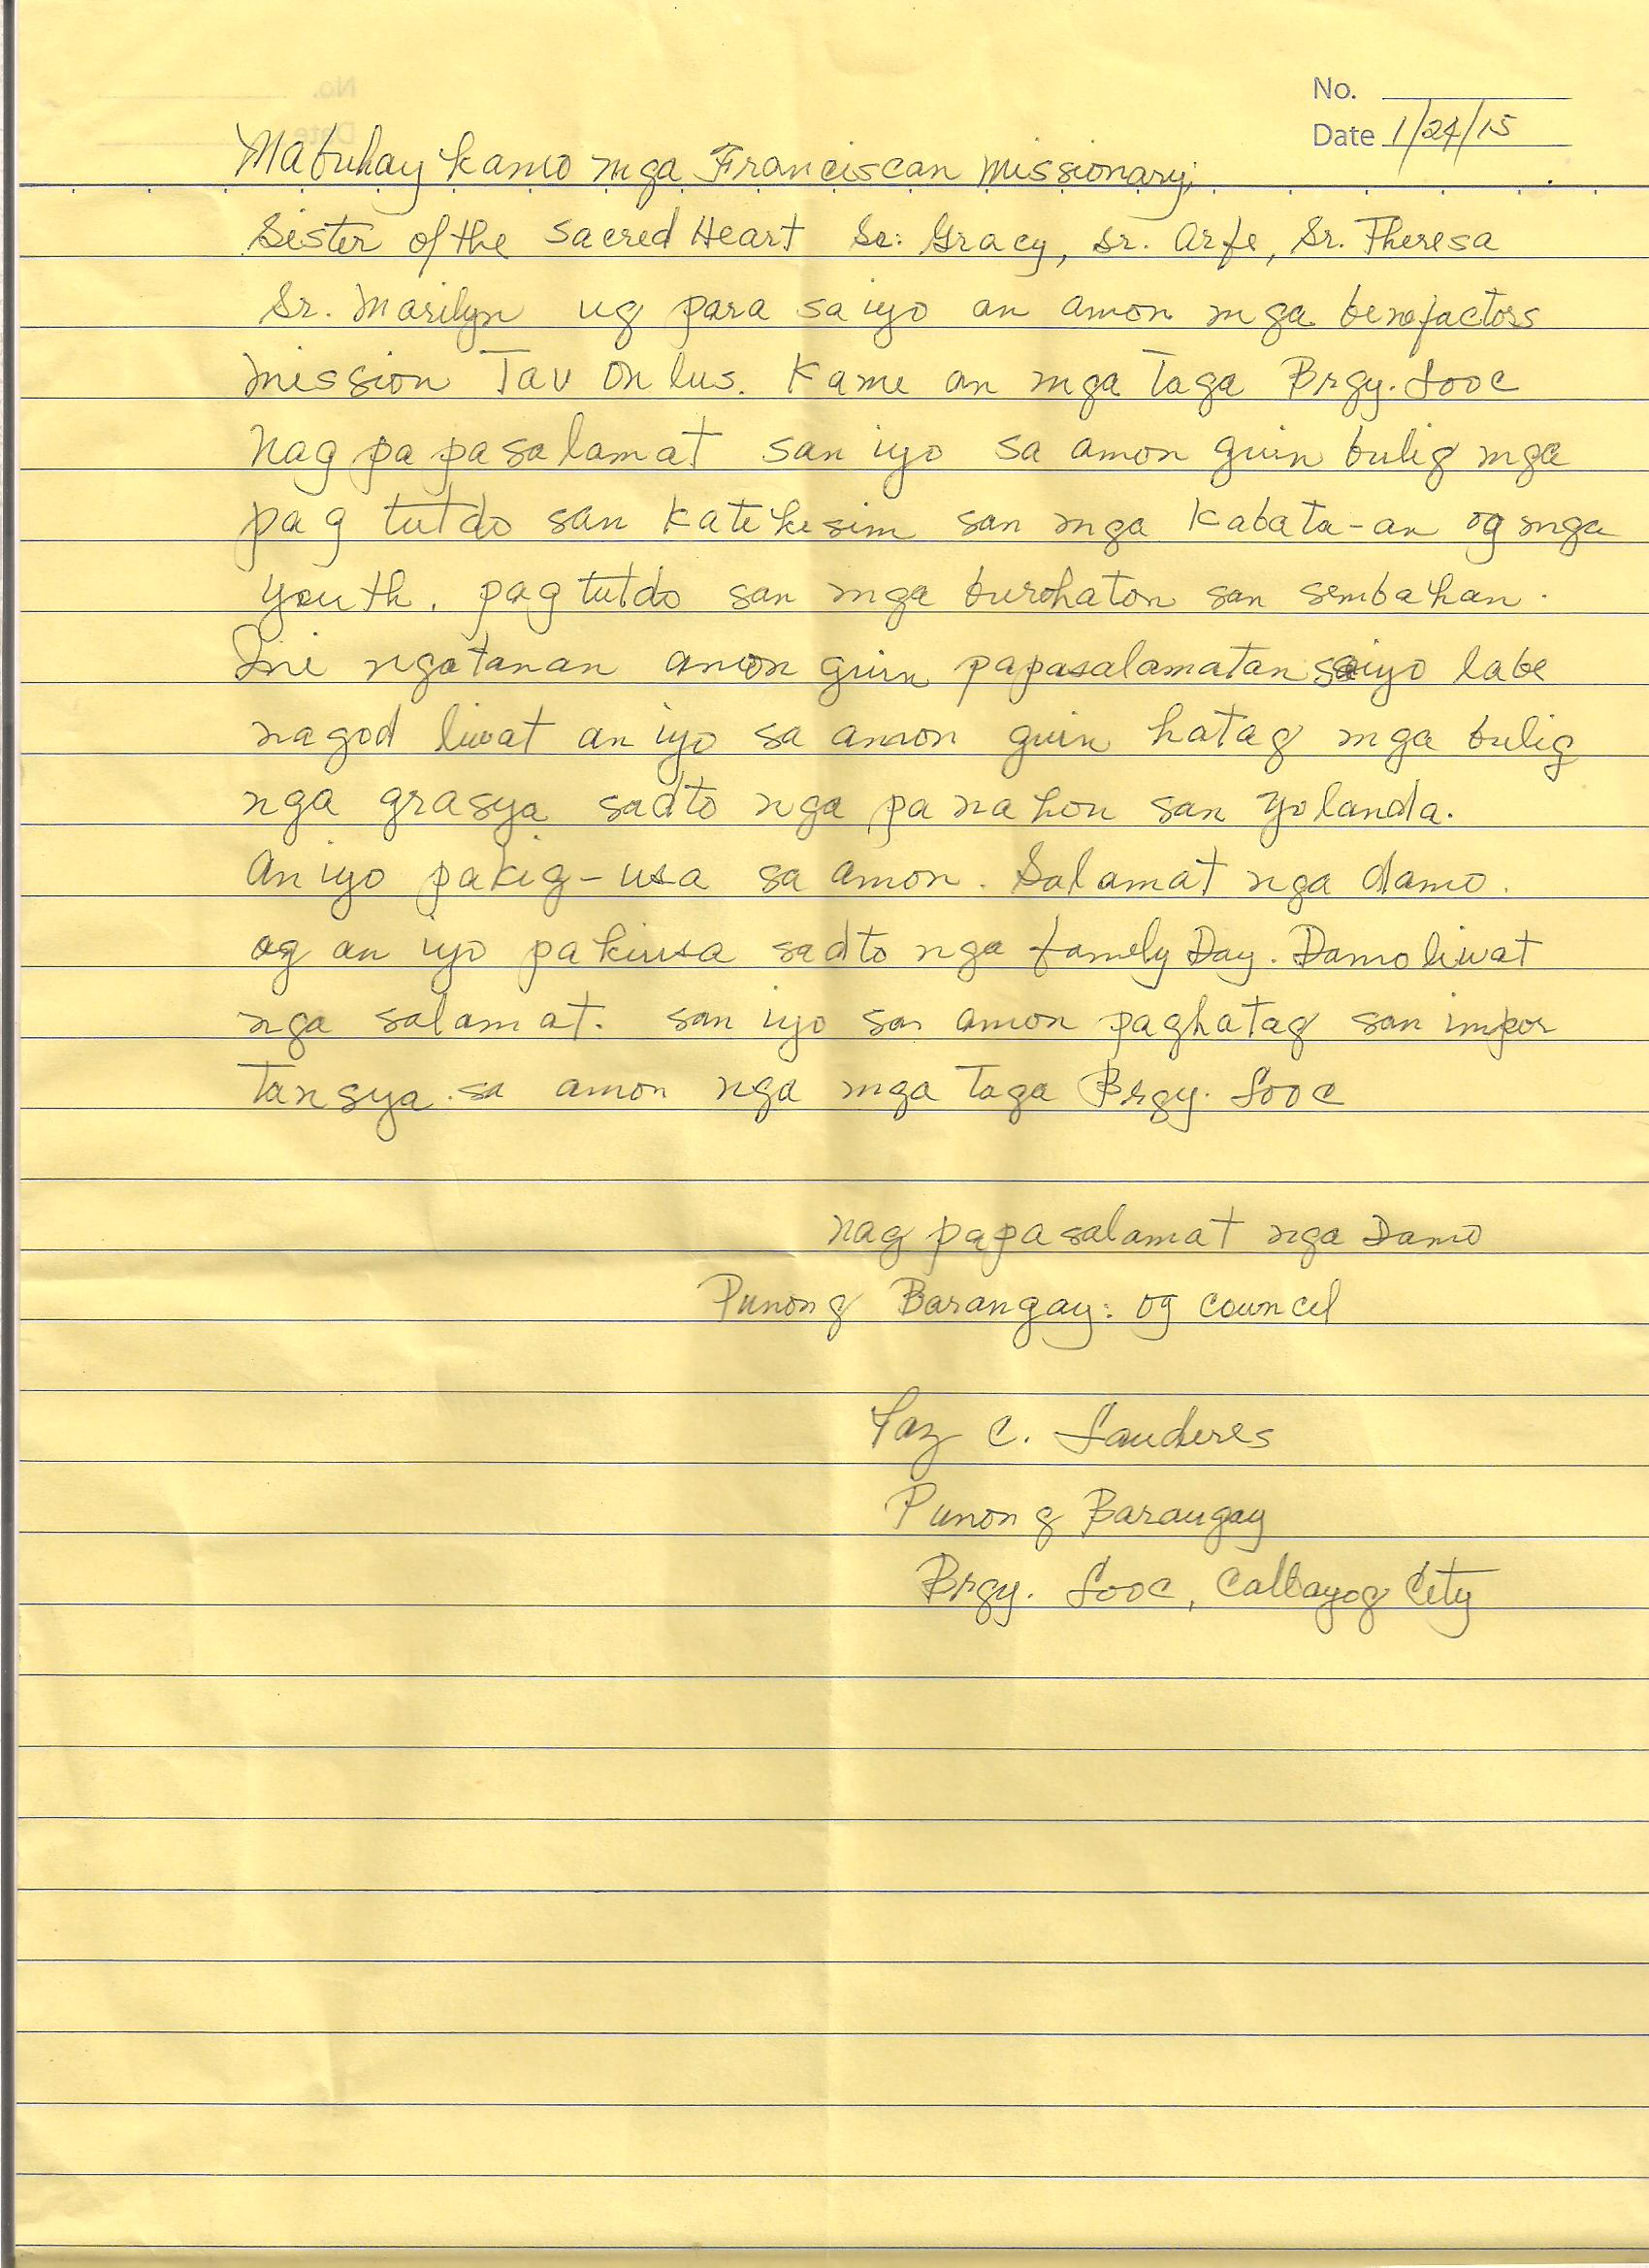 No.
Date 1/24/15
Mabuhay kamo mga Franciscan missionary;
Sister of the Sacred Heart Sr: Gracy, Sr. Arfe, Sr. Theresa
Sr. Marilyn ug para sa iyo an amon mga benefactors
mission Tav Onlus. Kame an mga Taga Brgy. Looc
nag papasalamat san iyo sa amon guin bulig mga
pag tutdo san katekesim san mga kabata-an og mga
youth. pag tutdo san mga burohaton san sembahan.
Ini ngatanan amon guin papasalamatan sa iyo labe
nagod liwat an iyo sa amon guin hatag mga bulig
nga grasya sadto nga panahon san Yolanda.
An iyo pakig-usa sa amon. Salamat nga damo.
og an iyo pakiusa sadto nga family Day. Damo liwat
nga salamat. san iyo sa amon paghatag san impor
tansya. sa amon nga mga taga Brgy. Looc
nag papasalamat nga Damo
Punong Barangay: og councel
C.
Punong Barangay
Brgy. Looc, Calbayog City